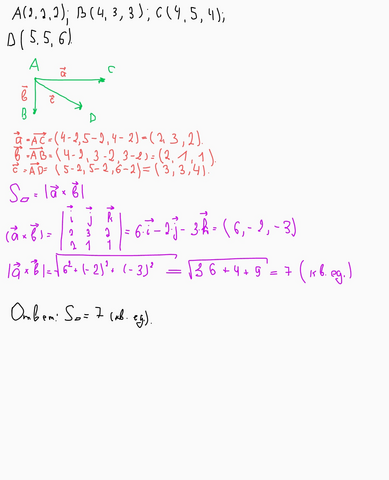 A(2,2,2); B(4,3,3); C(4,5,4);
D(5,5,6).
A
a⃗
C
b⃗
c⃗
B
D
a⃗ = AC⃗ = (4-2, 5-2, 4-2) = (2, 3, 2).
b⃗ = AB⃗ = (4-2, 3-2, 3-2) = (2, 1, 1).
c⃗ = AD⃗ = (5-2, 5-2, 6-2) = (3, 3, 4).
S▱ = |a⃗ × b⃗|
(a⃗ × b⃗) = | i⃗ j⃗ k⃗ | = 6·i⃗ - 2·j⃗ - 3·k⃗ = (6, -2, -3)
2 3 2
2 1 1
|a⃗ × b⃗| = √6² + (-2)² + (-3)² = √36 + 4 + 9 = 7 (кв. ед.)
Ответ: S▱ = 7 (кв. ед).